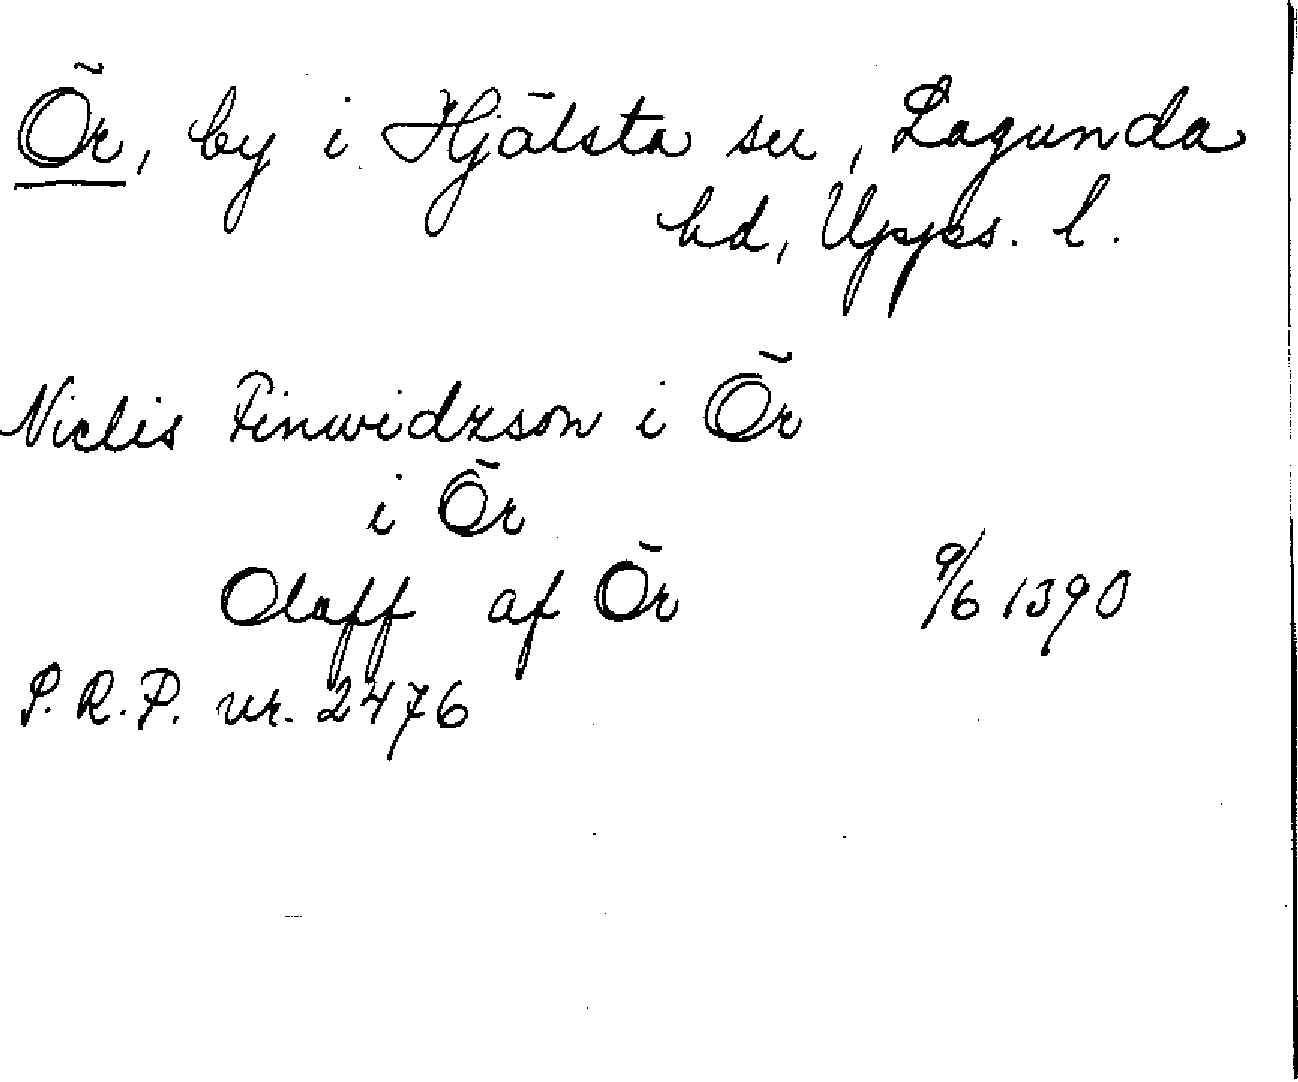 Ör, by i Hjälsta sn, Lagunda
hd, Upps. l.
Niclis Finwidzson i Ör
i Ör
Olaff af Ör 9/6 1390
S.R.P. nr. 2476